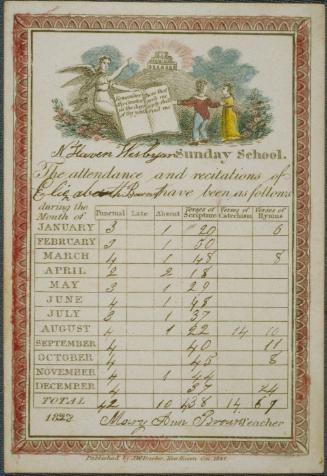 Remember those that
N. Haven Wesleyan Sunday School.
The attendance and recitations of
Elizabeth Brown have been as follows
during the Month of | Punctual | Late | Absent | Verses of Scripture | Verses of Catechism | Verses of Hymns
JANUARY 3 1 20 6
FEBRUARY 3 1 50
MARCH 4 1 48 8
APRIL 2 2 18
MAY 3 1 29
JUNE 4 48
JULY 3 1 37
AUGUST 4 1 22 14 10
SEPTEMBER 4 40 11
OCTOBER 4 45 8
NOVEMBER 4 1 44
DECEMBER 4 37 24
TOTAL 42 10 438 14 67
1827 Mary Ann Brown Teacher
Published by J.W. Barber, New Haven Con.